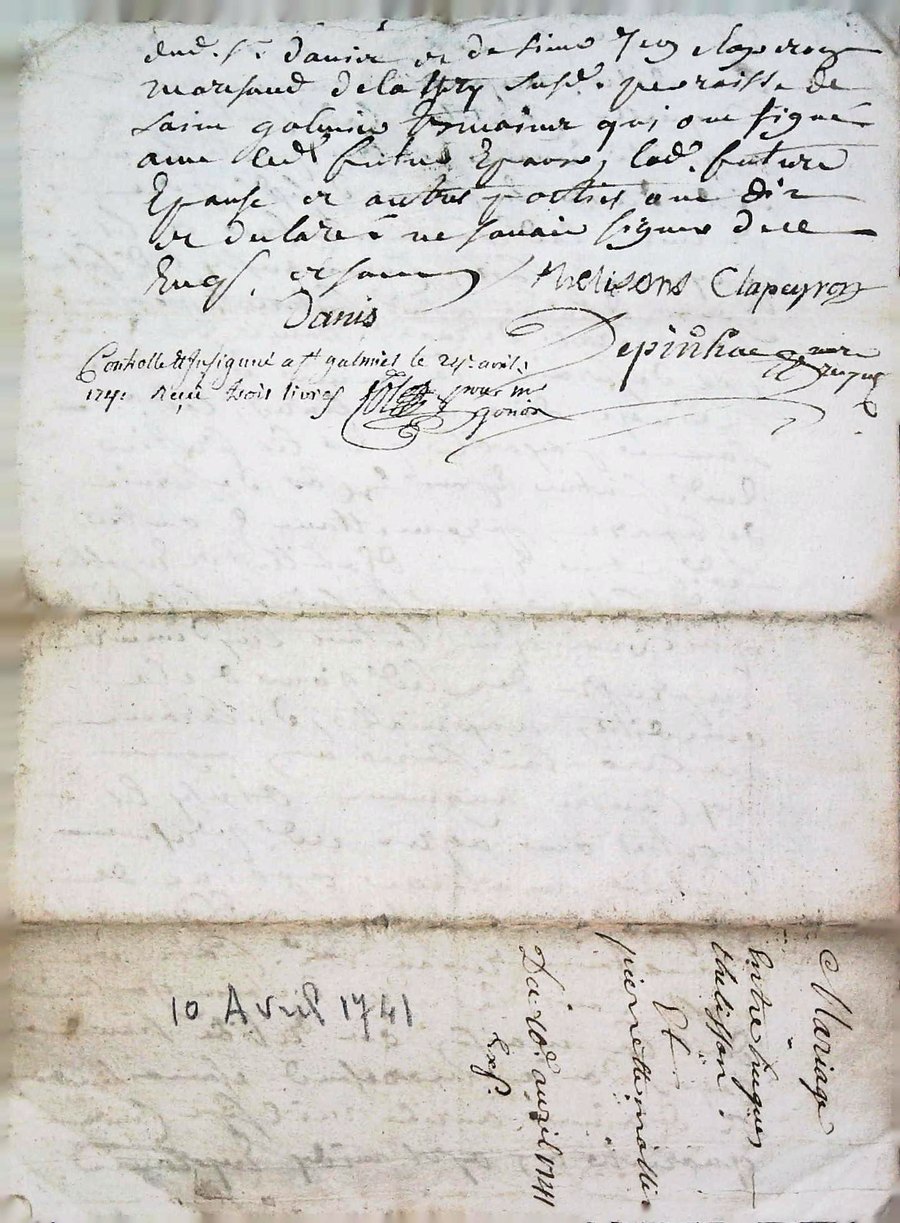 dud. Sr. Danis et de sieur Jean Clapeyron
marchand de la susd. perroisse de
saint galmier temoins qui ont signé
avec led. futur Epoux, lad. future
Epouse et autres parties ont dit
et declaré ne savoir signer de ce
Enqs. et somm
thelisons Clapeyron
Danis
Depinhac
Controllé et Insignué a St galmier le 24e. avril
174 Reçu trois livres
pour mr
gonon
Mariage
Entre hugues
thelisson
Et
pierrette mollin
Du 10e. avril 1741
Exp.
10 Avril 1741